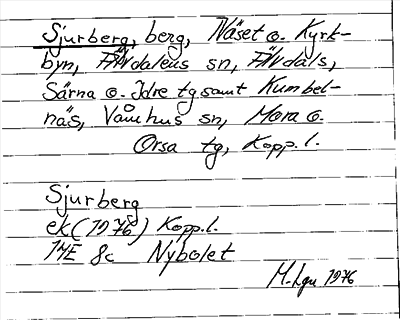 Sjurberg, berg, Näset o. Kyrk-
byn, Älvdalens sn, Älvdals,
Särna o. Idre tg samt Kumbel-
näs, Våmhus sn, Mora o.
Orsa tg, Kopp. l.
Sjurberg
ek (1976) Kopp. l.
14E 8c Nybolet
M-Lgn 1976